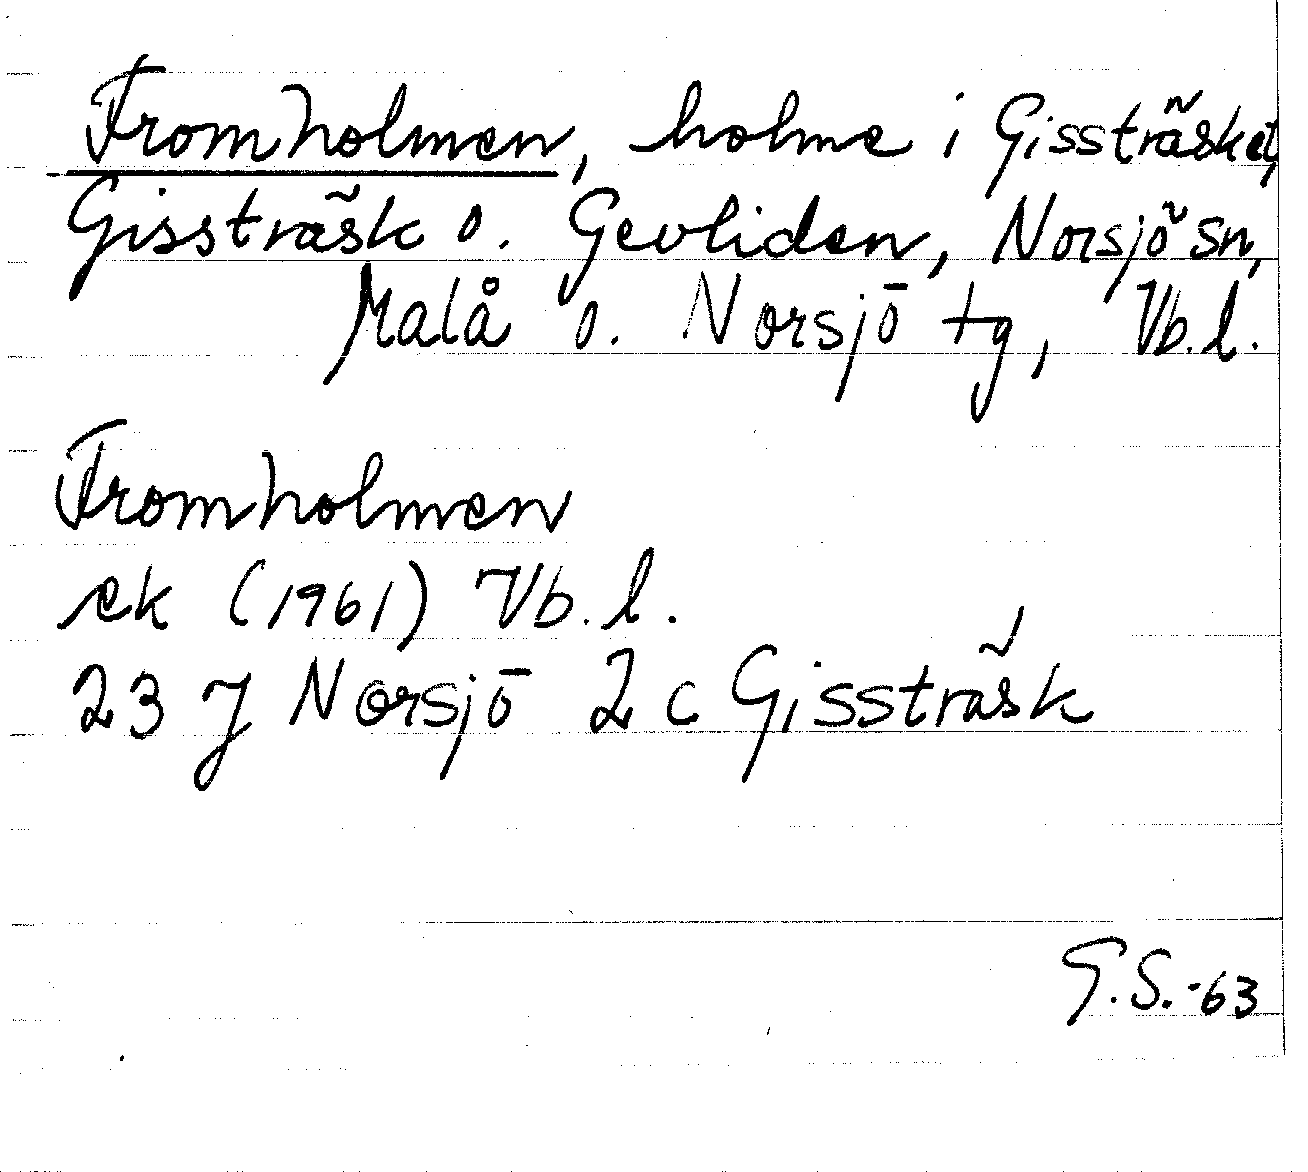 Fromholmen, holme i Gissträsket,
Gissträsk o. Gevliden, Norsjö sn,
Malå o. Norsjö tg, Vb. l.
Fromholmen
ek (1961) Vb. l.
23 J Norsjö 2 c Gissträsk
G.S.-63